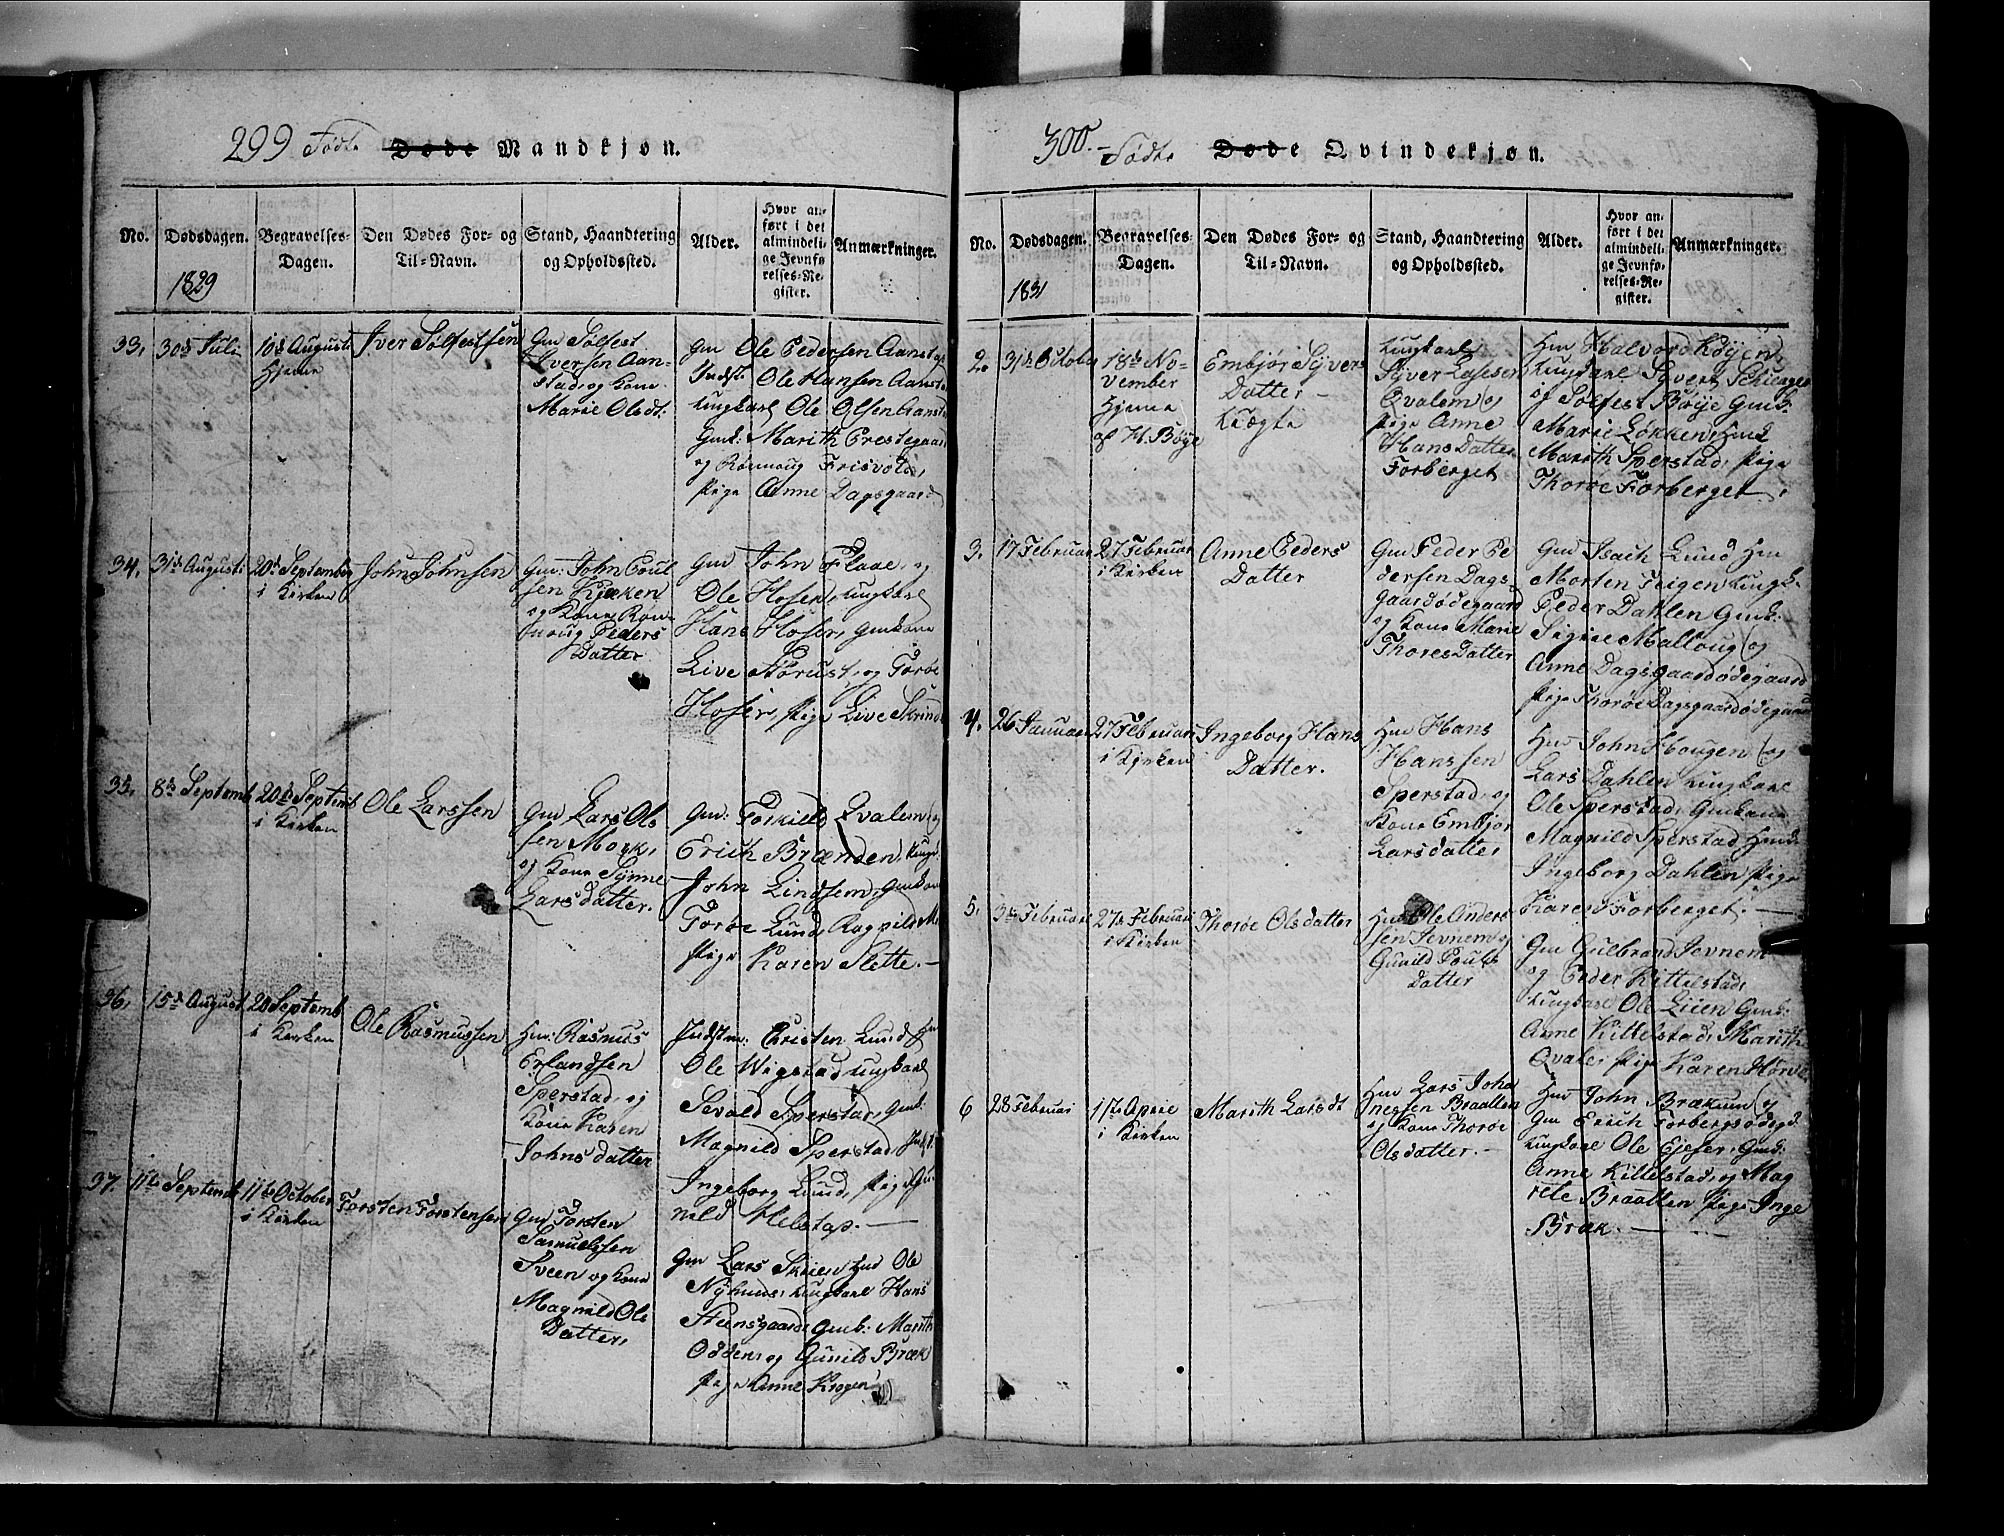 299 Fødte Døde Mandkjøn.
No.
Dødsdagen.
1829
Begravelses-
Dagen.
Den Dødes For- og
Til-Navn.
Stand, Haandtering
og Opholdssted.
Alder.
Hvor an-
ført i det
almindeli-
ge Jevnfø-
relses-Re-
gister.
Anmærkninger.
33.
30de Juli
10de Augusti
Hjeme
Iver Solfestsen
Gm Solfest
Iversen Aan-
stad, og Kone
Marie Olsdt.
Gm Ole Pedersen Aanstad
Indst. Ole Hansen Aansta
Ungkarl Ole Olsen Aansta
Gmk: Marith Prestegaard
og Rønnoug Frisvold,
Pige Anne Dagsgaard
34.
31de Augusti
20de September
i Kirken
John Johnsen
Gm: John Poul
sen Kjøken
og Kone Røn
noug Peders
Datter
Gm John Flaae, og
Ole Hosen, Ungkarl
Hans Hosen, Gmkone
Live Storust, og Torøe
Hosen, Pige Live Skrinde
35.
8de Septemb
20de Septemb
i Kirken
Ole Larssen
Gm Lars Ols
sen Mork,
og Kone Synne
Larsdatter.
Gm: Torkild Qvalem og
Erich Brænden, Ungk.
John Lindsem, Gmkone
Torøe Lund, Ragnild M
Pige Karen Slette. —
36.
15de August
20 Septemb
i Kirken
Ole Rasmussen
Hm: Rasmus
Erlandsen
Sperstad, og
Kone Karen
Johnsdatter
Indstm: Christen Lund Hm
Ole Wigstad Ungkarl
Sevald Sperstad, Gmk:
Magnild Sperstad, Indst.
Ingeborg Lund, Pige Gu
nild Helstap. —
37.
11te Septemb
11te October
i Kirken
Torsten Torstensen
Gm Torsten
Samuelssen
Sveen og Kone
Magnild Ols
Datter,
Gm Lars Skrien Hm Ole
Nyhuus, Ungkarl Hans
Steensgaard, Gmk: Marith
Odden, og Gunild Bræk
Pige Anne Krogen
300. — Fødte Døde Qvindekjøn.
No.
Dødsdagen.
1831
Begravelses-
Dagen.
Den Dødes For- og
Til-Navn.
Stand, Haandtering
og Opholdssted.
Alder.
Hvor an-
ført i det
almindeli-
ge Jevnfø-
relses-Re-
gister.
Anmærkninger.
2.
31te October
18de No-
vember
Hjeme
af H. Bøye
Embjør Syvers
Datter —
Uægte
Ungkarl
Syver Larsen
Qvalem og
Pige Anne
Hans Datter
Forberget
Hm Halvord Røyen,
Ungkarl Syvert Schienge
og Solfest Bøye Gmk:
Marie Løkken, Hmk
Marith Sperstad, Pige
Thorøe Forberget,
3.
17 Februar
27 Februar
i Kirken
Anne Peders
Datter
Gm Peder Pe
dersen Dags-
gaardødegaard
og Kone Marie
Thores Datter
Gm Isach Lund Hm
Morten Teigen, Ungk.
Peder Dahlen Gmk:
Signe Malloug og
Anne Dagsgaardødegaard
Pige Thorøe Dagsgaardødegaard
4.
26 Januar
27 Februari
i Kirken
Ingeborg Hans
Datter.
Hm Hans
Hanssen
Sperstad, og
Kone Embjør
Larsdatter,
Hm John Hougen og
Lars Dahlen Ungkarl
Ole Sperstad, Gmkone
Magnild Sperstad, Hmk
Ingeborg Dahlen Pige
Karen Forberget. —
5.
3de Februari
27de Februari
i Kirken
Thorøe Olsdatter
Hm Ole Anders
sen Jevnem og
Gunild Pouls
Datter
Gm Gulbrand Jevnem
og Peder Kittelstad,
Ungkarl Ole Liien Gmk:
Anne Kittelstad, Marith
Qvale, Pige Karen Horve
6
28 Februari
17de Aprie
i Kirken
Marith Larsdt
Hm Lars Joha
nessen Braatten
og Kone Thorøe
Olsdatter. —
Hm John Brækum og
Gm Erich Forbergsødegd.
Ungkarl Ole Ejefer, Gmk:
Anne Kittelstad, og Mag
rete Braatten Pige Inge
Bræk. —